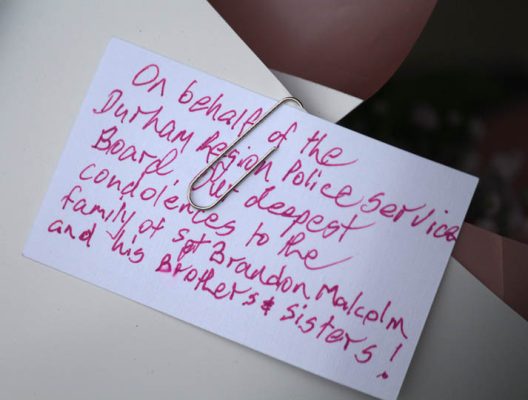 On behalf of the
Durham Region Police Service
Board our deepest
condolences to the
family of sgt Brandon Malcolm
and his Brothers & sisters!